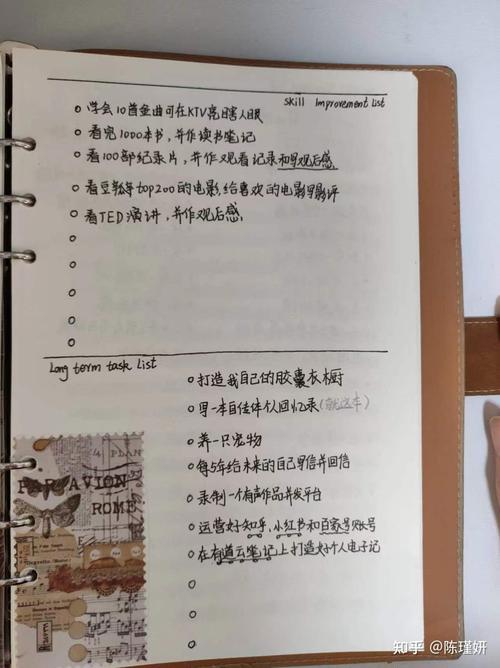 Skill Improvement list
学会10首金曲可在KTV亮瞎人眼
看完1000本书,并作读书笔记
看100部纪录片,并作观看记录和写观后感
看豆瓣top200的电影,给喜欢的电影写影评
看TED演讲,并作观后感
Long term task List
打造我自己的胶囊衣橱
写一本自传体个人回忆录(就这本)
养一只宠物
每5年给未来的自己写信并回信
录制一个有声作品并发平台
运营好知乎,小红书和百家号账号
在有道云笔记上打造好个人电子记
PLAN
PAR AVION
ROME
知乎 @陈瑾妍